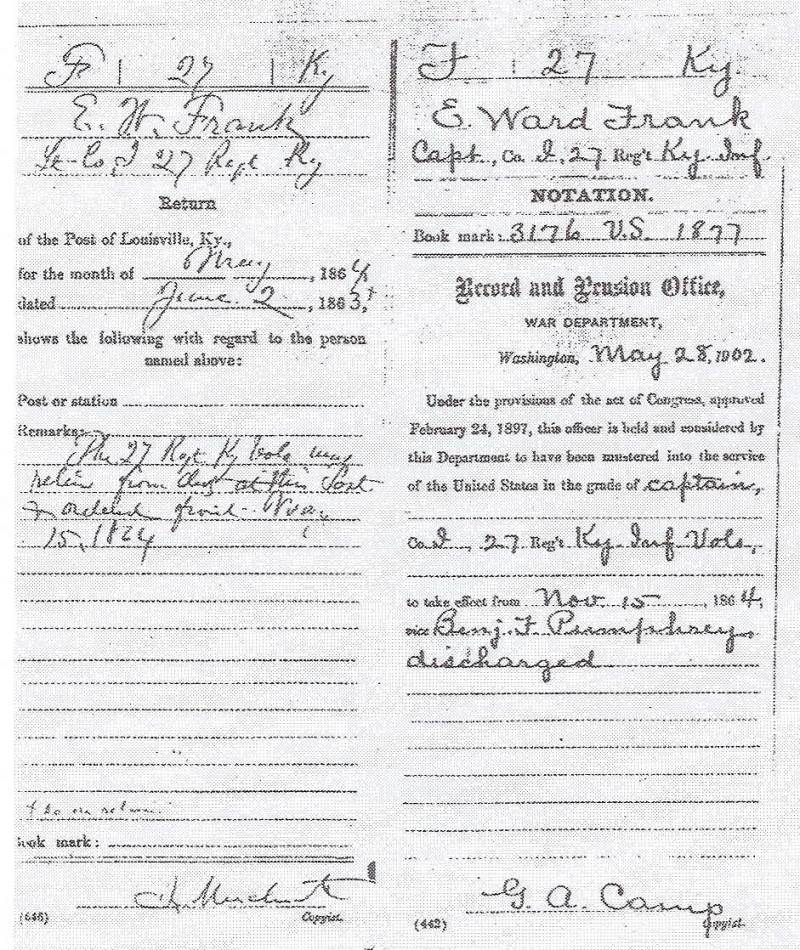 F | 27 | Ky
E. W. Frank
Co. I 27 Regt Ky
Return
of the Post of Louisville, Ky.,
for the month of May, 1864
dated June 2, 1863,†
shows the following with regard to the person
named above:
Post or station
Remarks:
The 27 Regt Ky Vols was
reliev from duty at this Post
& ordered front
15, 1864
† So on return
Book mark:
Merchant
(646) Copyist.
F | 27 Ky.
E. Ward Frank
Capt., Co. I, 27 Reg't Ky. Inf.
NOTATION.
Book mark: 3176 V.S. 1877
Record and Pension Office,
WAR DEPARTMENT,
Washington, May 28, 1902.
Under the provisions of the act of Congress, approved
February 24, 1897, this officer is held and considered by
this Department to have been mustered into the service
of the United States in the grade of captain,
Co. I, 27 Reg't Ky. Inf Vols,
to take effect from Nov. 15, 1864,
vice Benj. F. Pumphrey,
discharged
G. A. Camp
(442) Copyist.